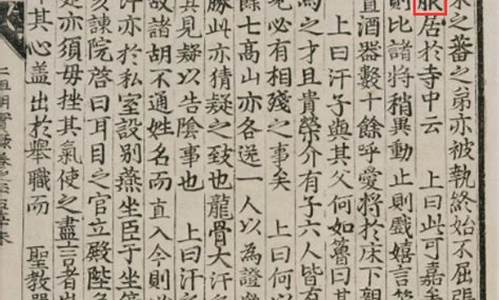 之蕃之弟亦被執終始不屈張
服居於寺中云 上曰此可嘉
則比諸將稍異動止則戲嬉言
置酒器數十餘呼愛將於床下親
上曰汗子與其父何如𦽦曰其
才且貴榮介有子六人皆有
必有相殘之事矣 上曰何以
七高山亦各送一人以為證
勝此亦猜疑之致也龍骨大汗
其見疑以告陰事也 上曰汗
故諸胡不通姓名而直入今則
汗亦於私室設別燕坐臣于坐
亥諫院啓曰耳目之官立殿陛
是亦須毋挫其氣使之盡言者
其心盖出於舉職而 聖教
仁祖朝實錄卷之